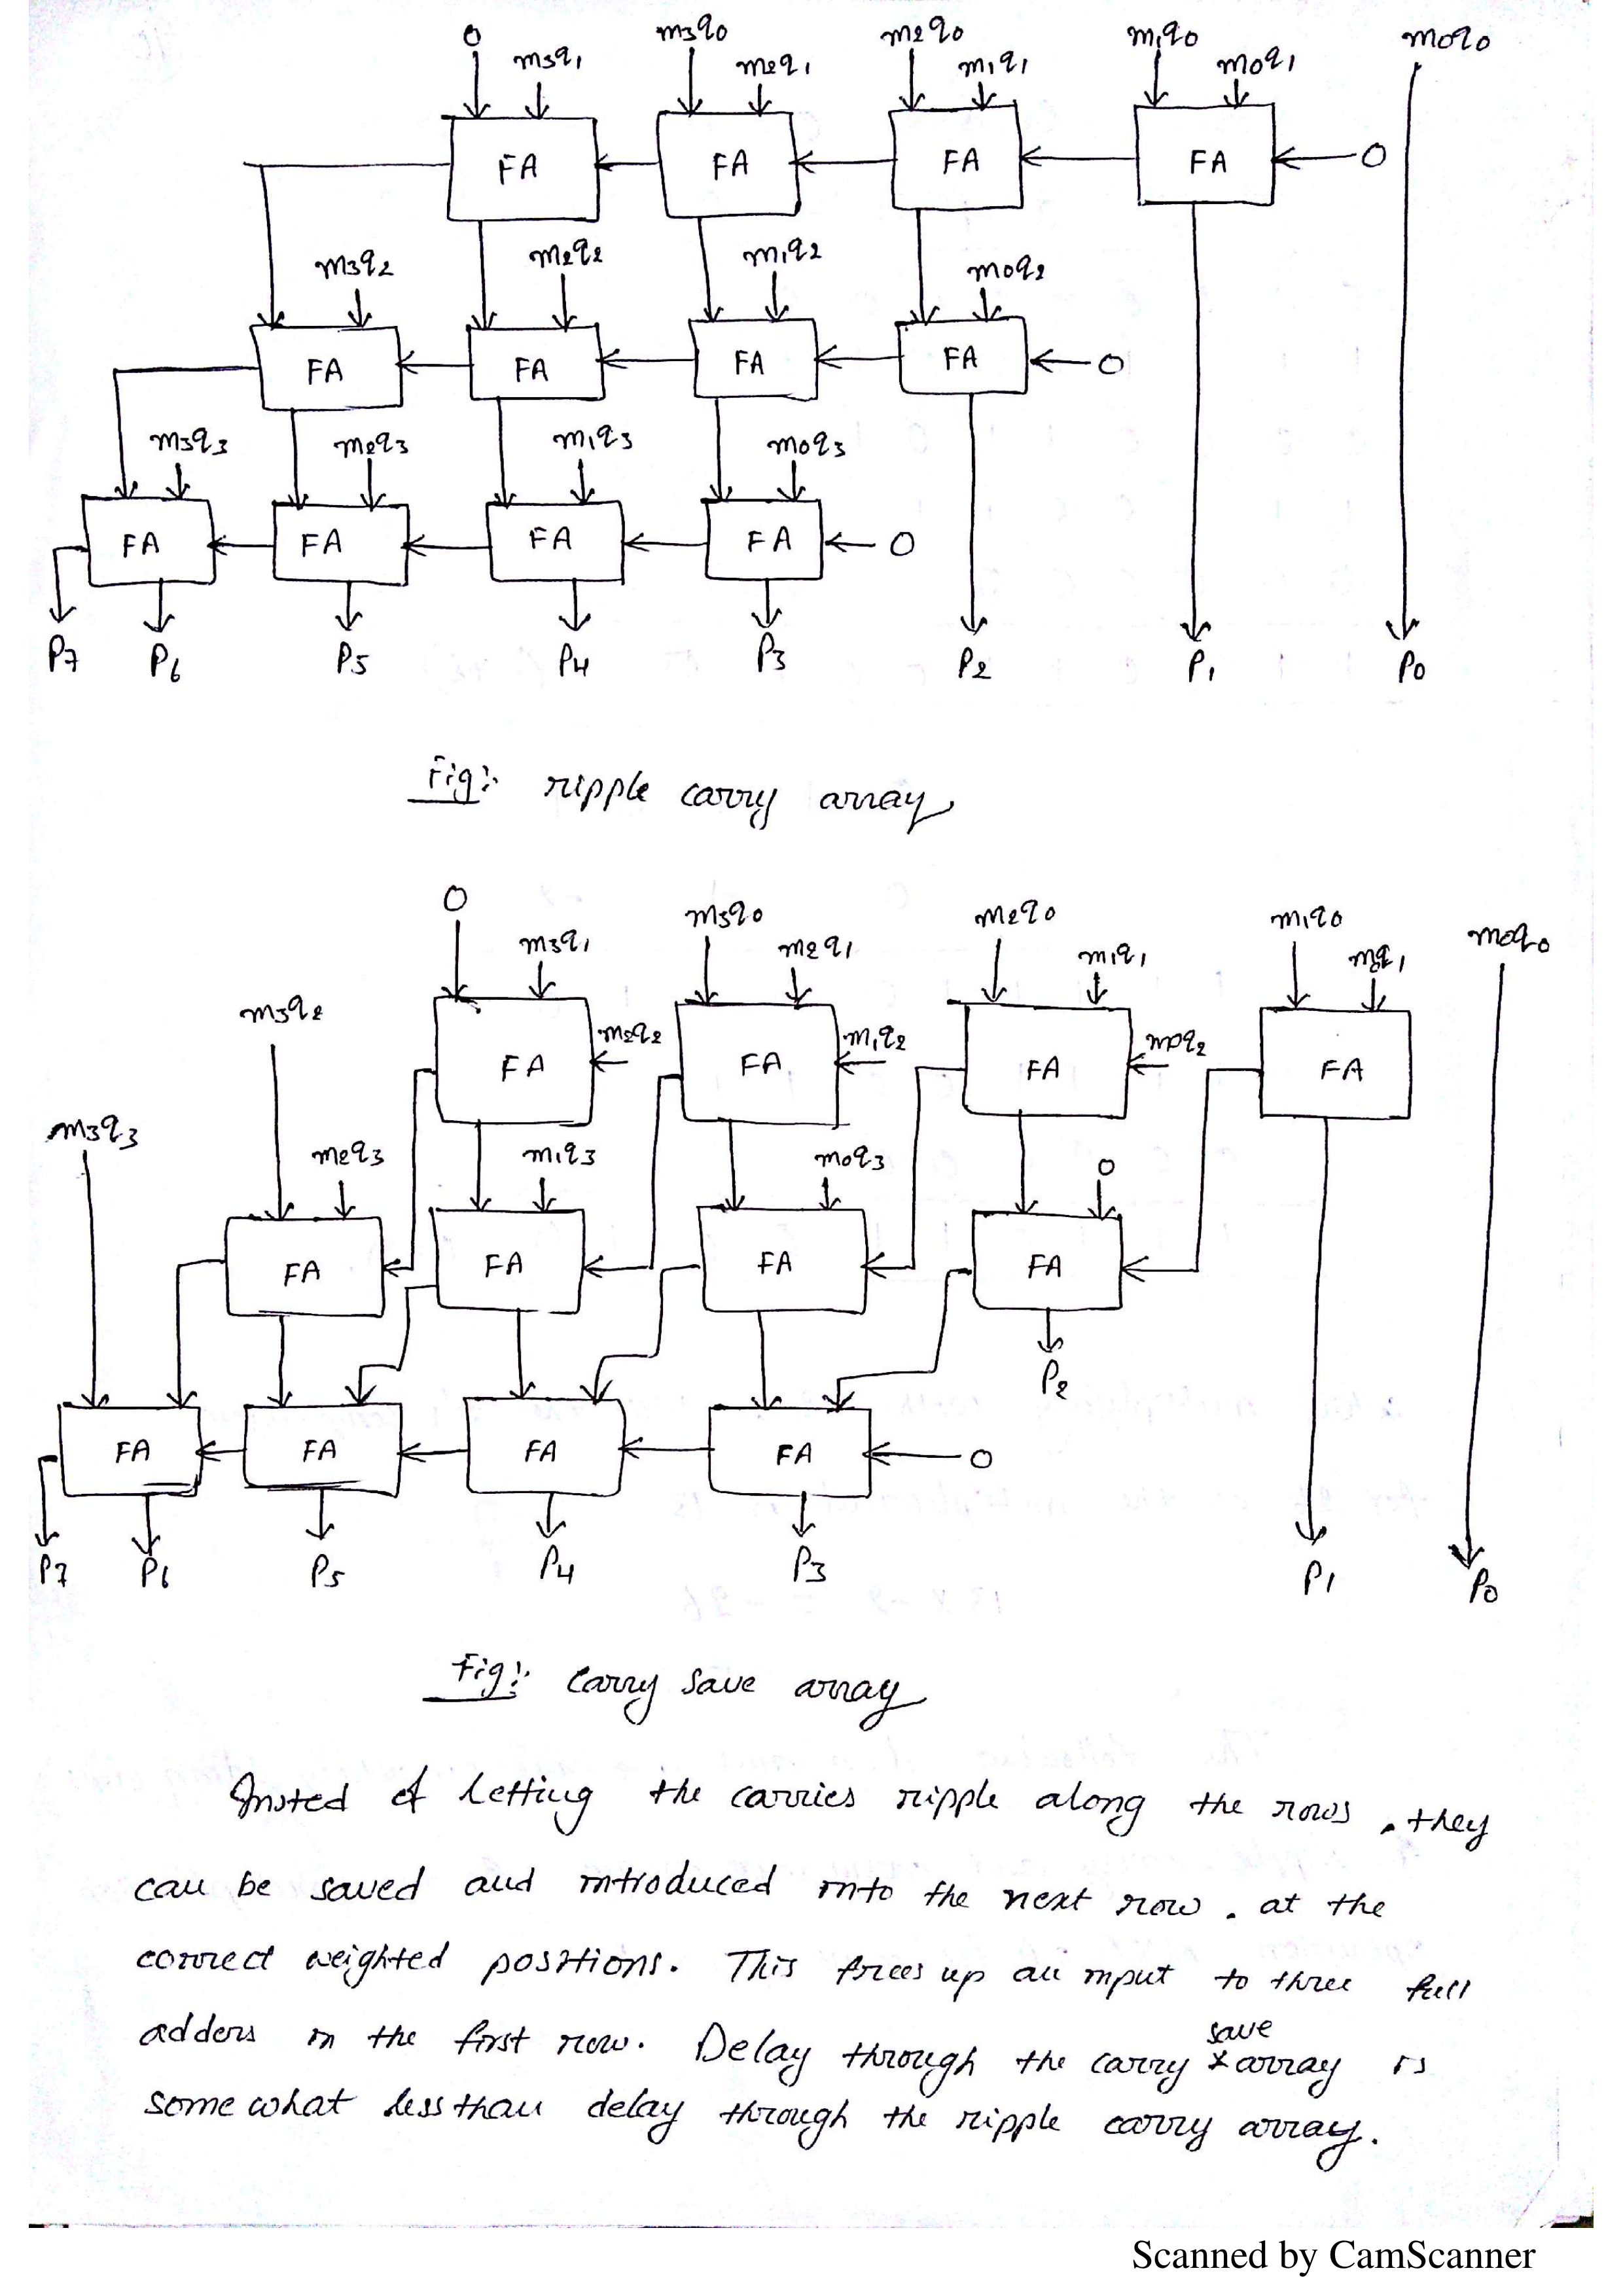 0 m3q0 m2q0 m1q0 m0q0
m3q1 m2q1 m1q1 m0q1
FA FA FA FA 0
m3q2 m2q2 m1q2 m0q2
FA FA FA FA 0
m3q3 m2q3 m1q3 m0q3
FA FA FA FA 0
P7 P6 P5 P4 P3 P2 P1 P0
Fig: ripple carry array
0 m3q0 m2q0 m1q0 m0q0
m3q1 m2q1 m1q1 m0q1
m3q2 m2q2 m1q2 m0q2
FA FA FA FA
m3q3 m2q3 m1q3 m0q3 0
FA FA FA FA
P2
FA FA FA FA 0
P7 P6 P5 P4 P3 P1 P0
Fig: Carry save array
Insted of letting the carries ripple along the rows, they
can be saved and introduced into the next row. at the
correct weighted positions. This frees up an input to three full
adders in the first row. Delay through the carry save array is
some what less than delay through the ripple carry array.
Scanned by CamScanner